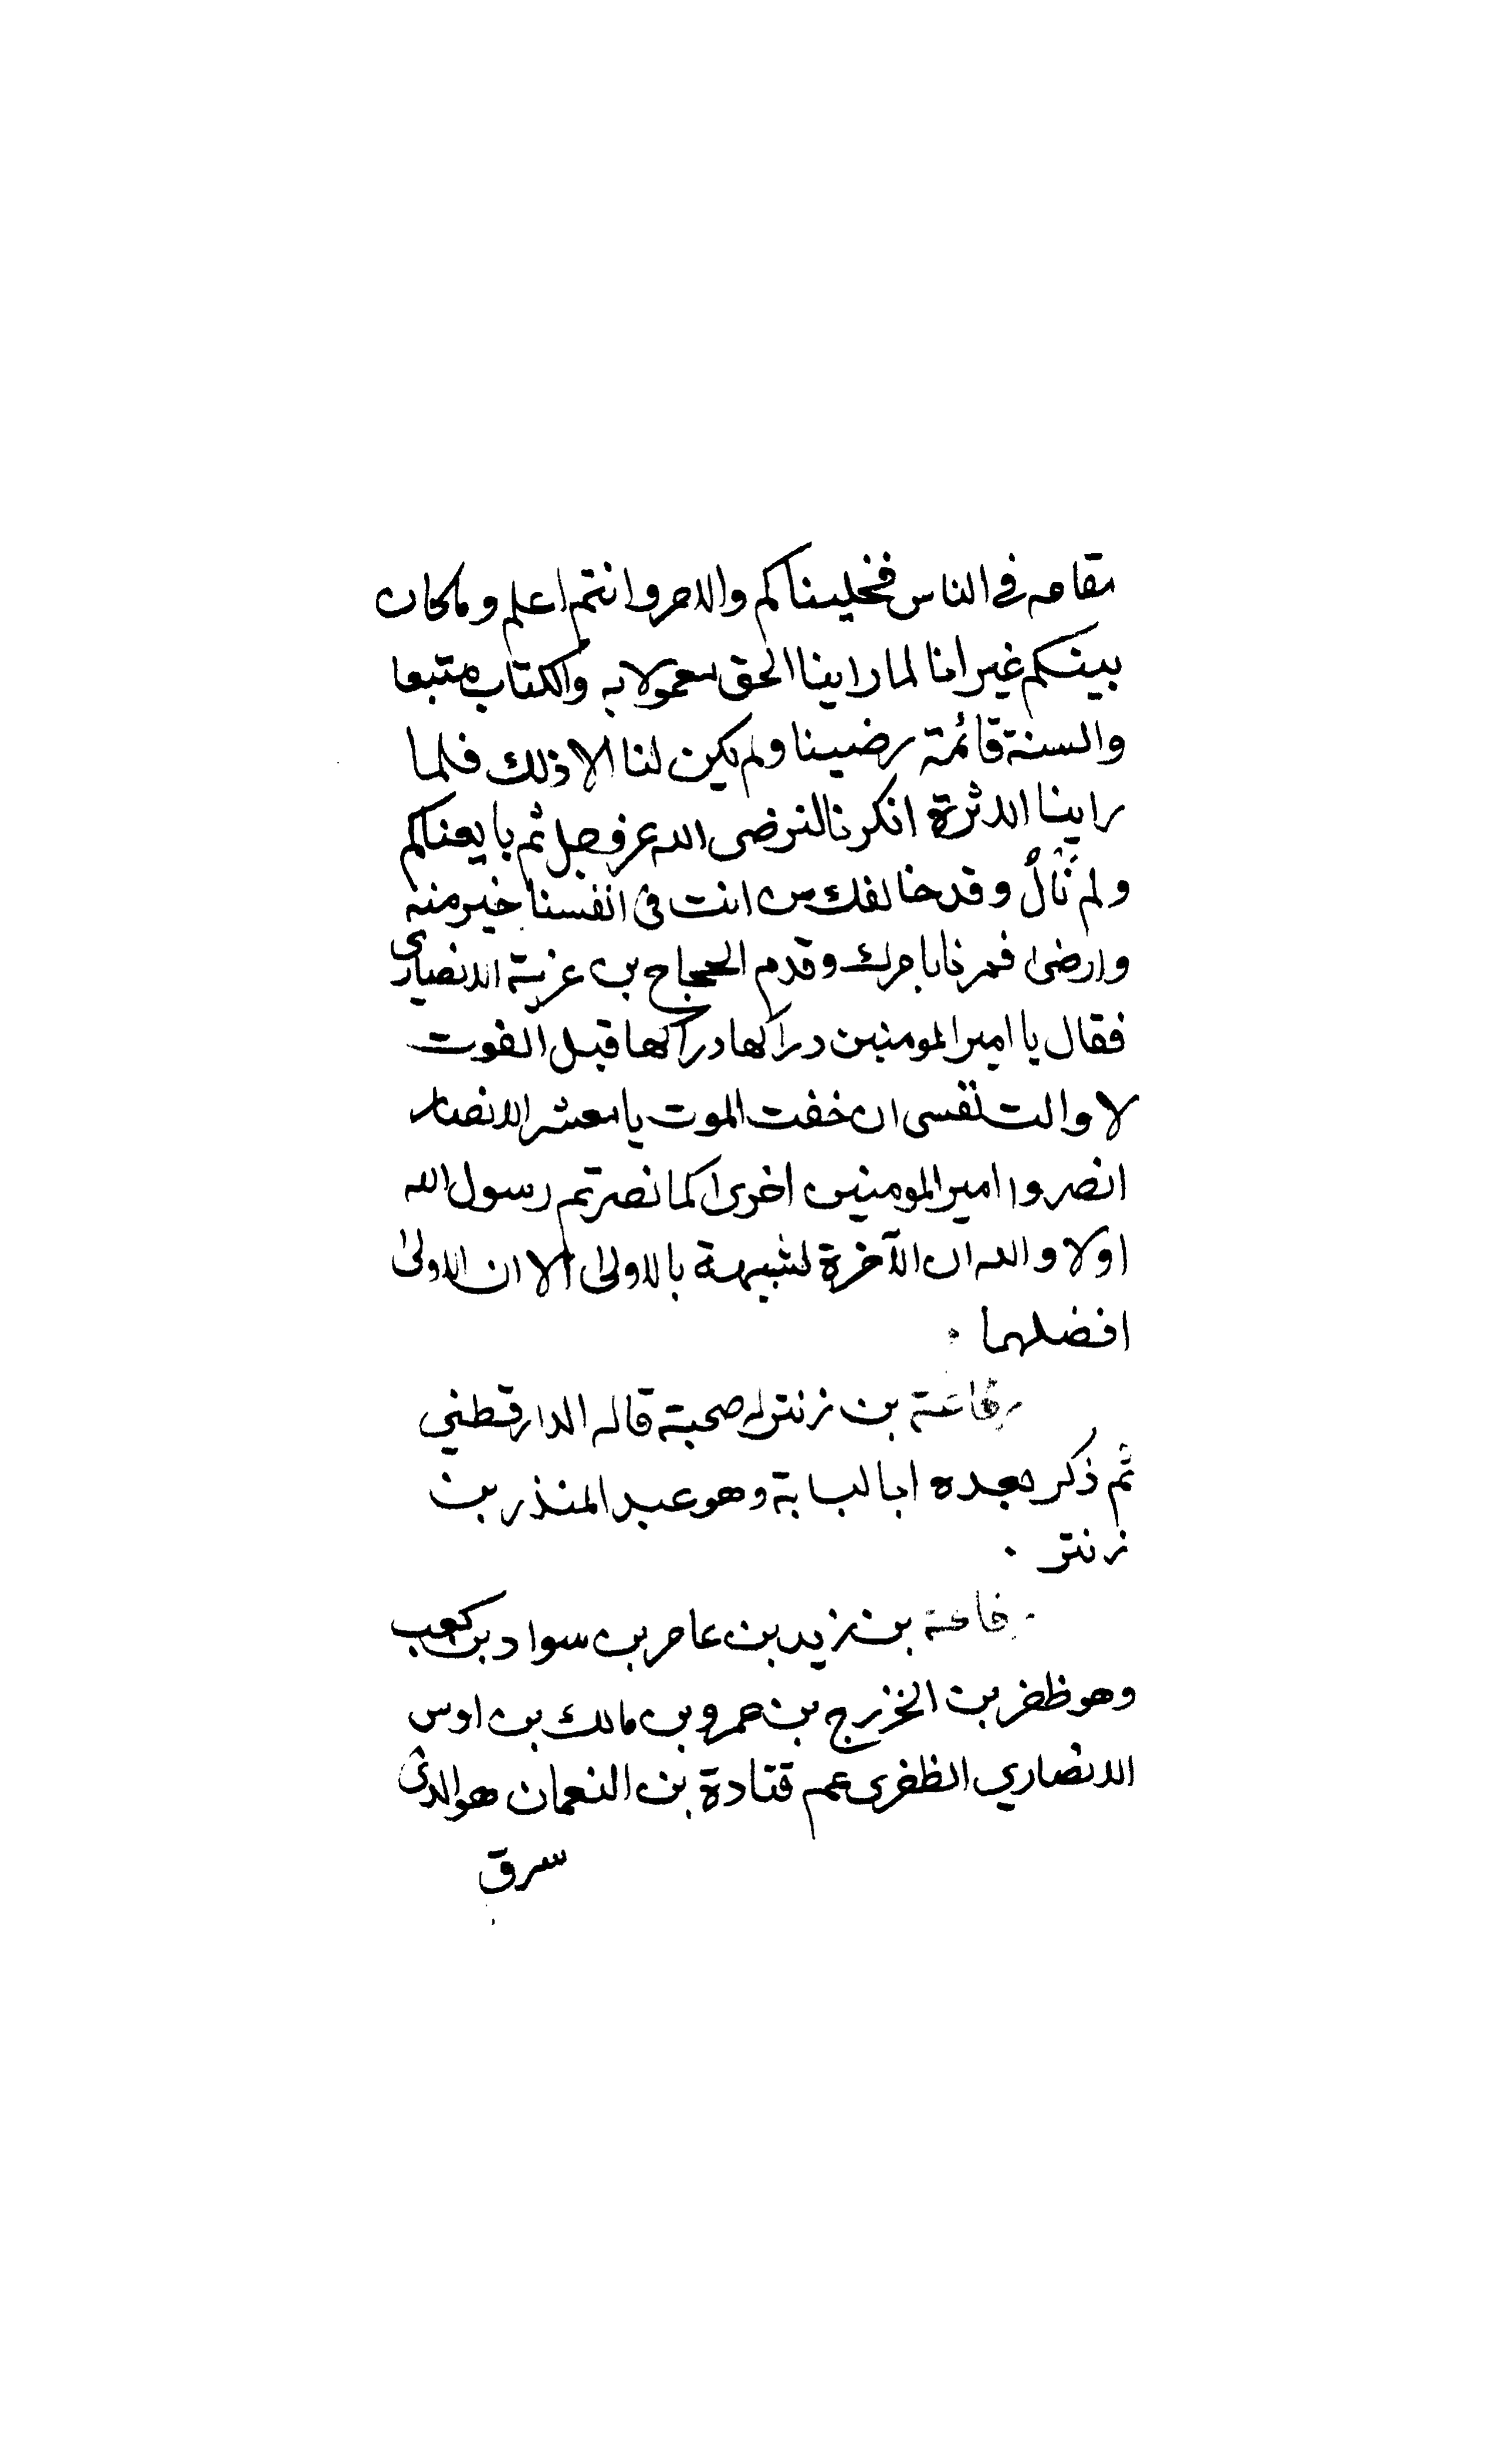 مقامه في الناس فخليناكم والامر وانتم اعلم وماكان
بينكم غير انا لما راينا الحق معمولا به والكتاب متبعا
والسنة قائمة رضينا ولم يكن لنا الا ذلك فلما
راينا الاثرة انكرنا لنرضى الله عز وجل ثم بايعناكم
ولم نأل وقد خالفك من انت في انفسنا خير منه
وارضى فمرنا بامرك وقدم الحجاج بن غزية الانصاري
فقال يا امير المومنين دراكها دراكها قبل الفوت
لا والت نفسى ان خفت الموت يا معشر الانصار
انصروا امير المومنين اخرى كما نصرتم رسول الله
اولا والله ان الآخرة لشبيهة بالاولى الا ان الاولى
افضلهما ٠
رفاعة بن زنتر له صحبة قاله الدارقطني
ثم ذكر بعده ابا لبابة وهو عبد المنذر بن
زنتر ٠
رفاعة بن زيد بن عامر بن سواد بن كعب
وهو ظفر بن الخزرج بن عمرو بن مالك بن اوس
الانصاري الظفرى عم قتادة بن النعمان هو الذى
سرق